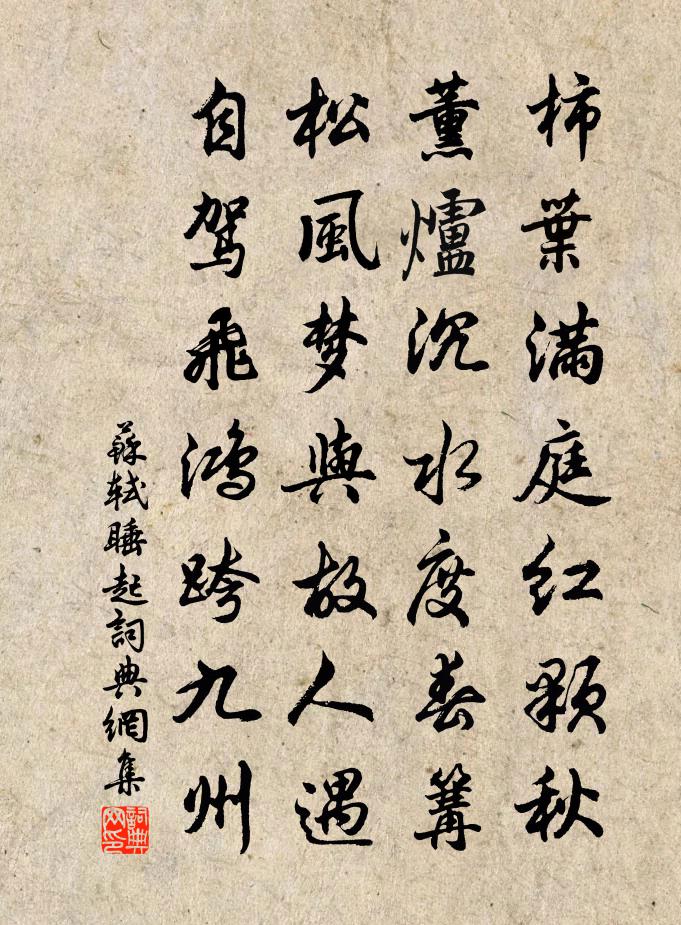 柿葉滿庭紅顆秋
薰爐沉水度春篝
松風梦與故人遇
自駕飛鴻跨九州
蘇軾睡起詞典網集
詞典
网印